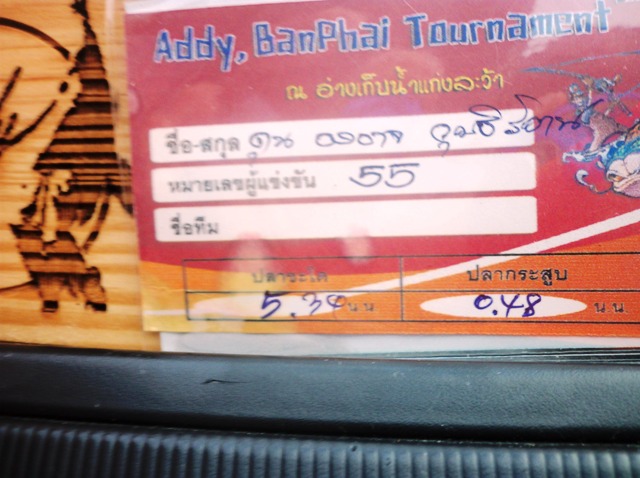 Addy, BanPhai Tournament
ณ อ่างเก็บน้ำแก่งละว้า
ชื่อ-สกุล คุณ
หมายเลขผู้แข่งขัน 55
ชื่อทีม
ปลาชะโด ปลากระสูบ
5.34 น.น 0.48 น.น.